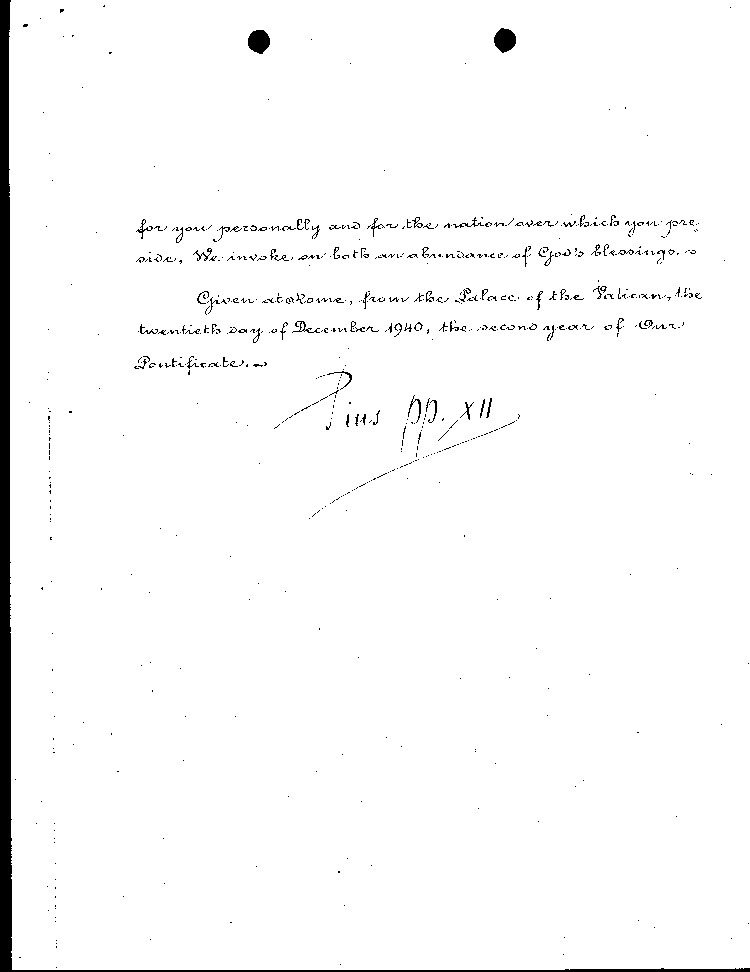 for you personally and for the nation over which you pre
side, We invoke on both an abundance of God's blessings.
Given at Rome, from the Palace of the Vatican, the
twentieth day of December 1940, the second year of Our
Pontificate.
Pius pp. XII